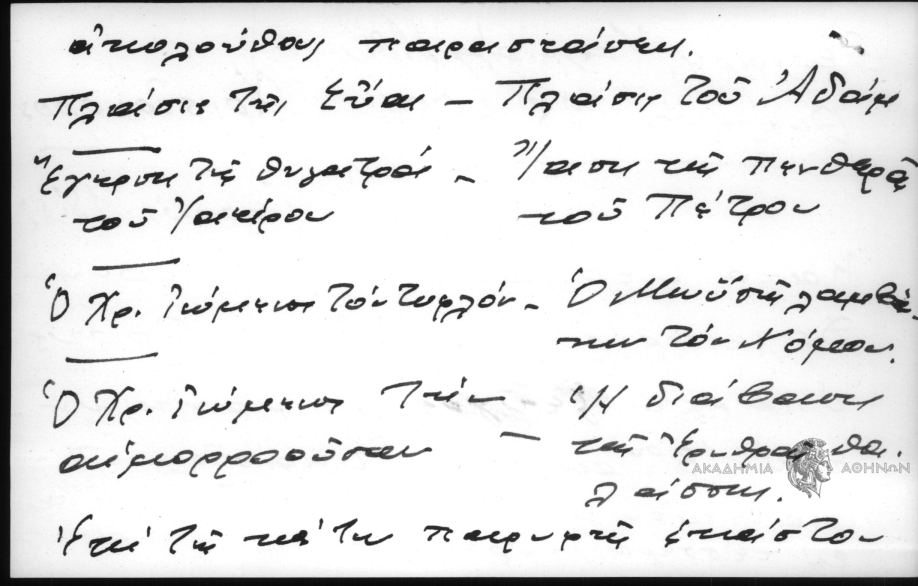 ἀκολούθους παραστάσεις.
Πλάσις τῆς Εὔας – Πλάσις τοῦ Ἀδάμ
Ἔγερσις τῆς θυγατρός – Ἴασις τῆς πενθερᾶς
τοῦ Ἰαείρου τοῦ Πέτρου
Ὁ Χρ. ἰώμενος τόν τυφλόν – Ὁ Μωϋσῆς λαμβά-
νων τόν Νόμον.
Ὁ Χρ. ἰώμενος τήν – Ἡ διάβασις
αἱμορροοῦσαν τῆς Ἐρυθρᾶς θα-
λάσσης.
ΑΚΑΔΗΜΙΑ ΑΘΗΝΩΝ
Ἐπί τῆς κάτω παρυφῆς ἑκάστου